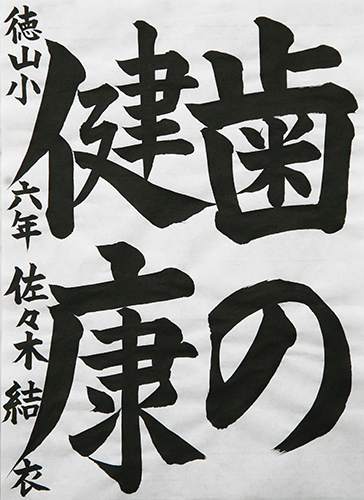 歯の
健康
徳山小 六年 佐々木 結衣